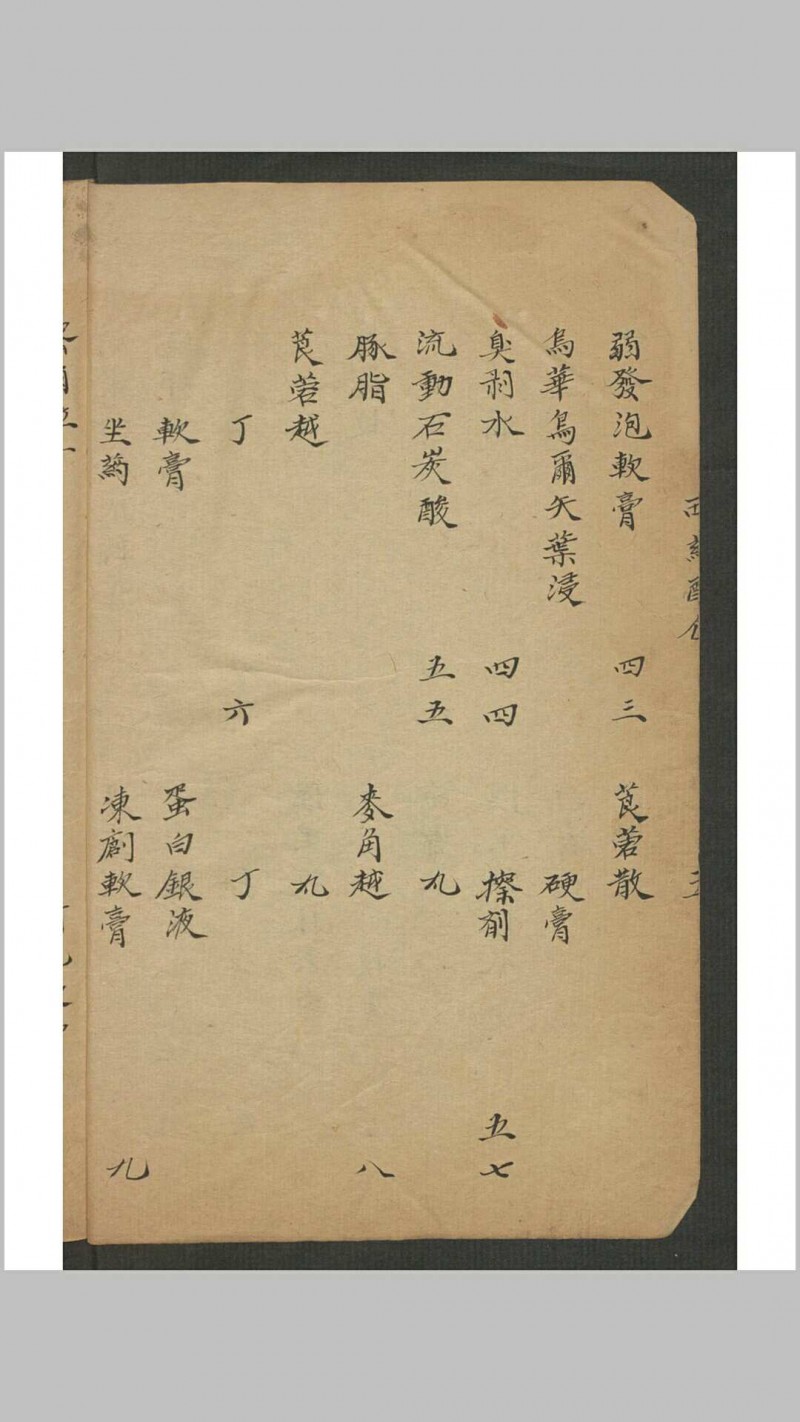 弱發泡軟膏 四三 莨菪散
烏華烏爾矢葉浸 硬膏
臭剥水 四四 擦剤 五七
流動石炭酸 五五 九
豚脂 麥角越 八
莨菪越 九
丁 六 丁
軟膏 蛋白銀液
坐药 凍劑軟膏 九